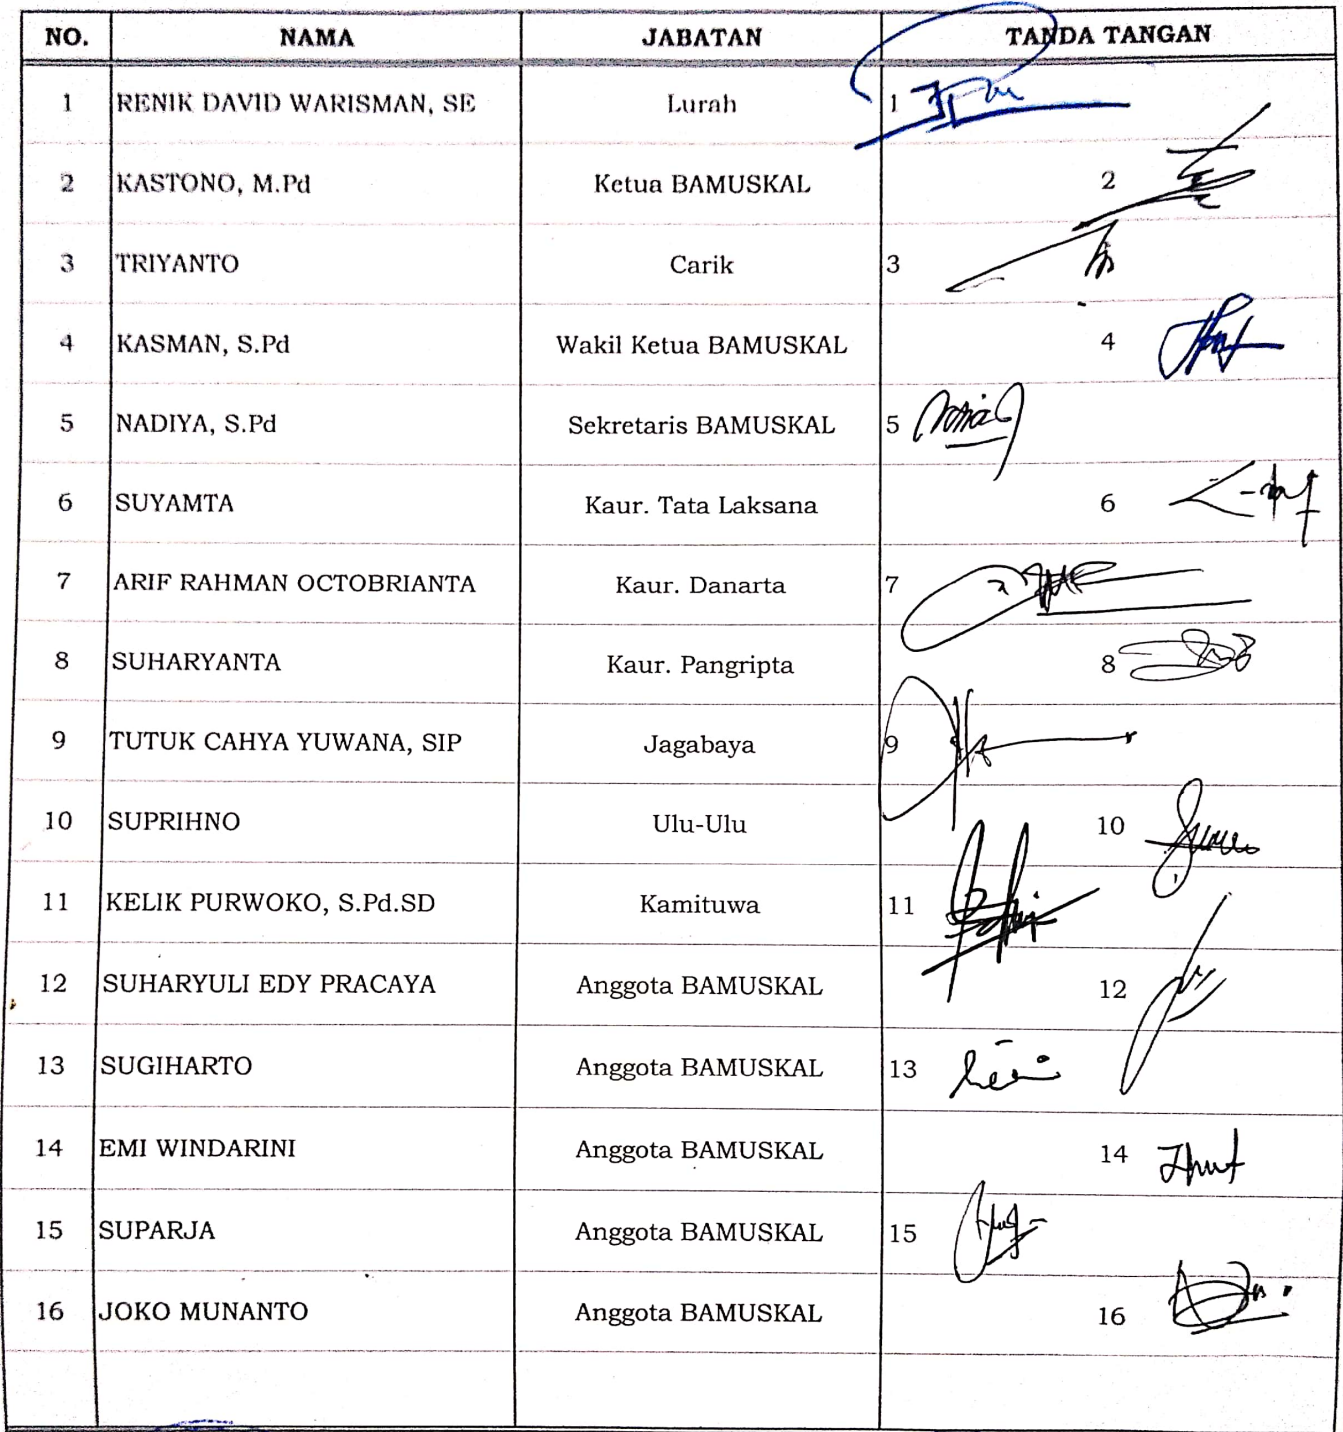 NO. NAMA JABATAN TANDA TANGAN
1 RENIK DAVID WARISMAN, SE Lurah 1
2 KASTONO, M.Pd Ketua BAMUSKAL 2
3 TRIYANTO Carik 3
4 KASMAN, S.Pd Wakil Ketua BAMUSKAL 4
5 NADIYA, S.Pd Sekretaris BAMUSKAL 5
6 SUYAMTA Kaur. Tata Laksana 6
7 ARIF RAHMAN OCTOBRIANTA Kaur. Danarta 7
8 SUHARYANTA Kaur. Pangripta 8
9 TUTUK CAHYA YUWANA, SIP Jagabaya 9
10 SUPRIHNO Ulu-Ulu 10
11 KELIK PURWOKO, S.Pd.SD Kamituwa 11
12 SUHARYULI EDY PRACAYA Anggota BAMUSKAL 12
13 SUGIHARTO Anggota BAMUSKAL 13
14 EMI WINDARINI Anggota BAMUSKAL 14
15 SUPARJA Anggota BAMUSKAL 15
16 JOKO MUNANTO Anggota BAMUSKAL 16